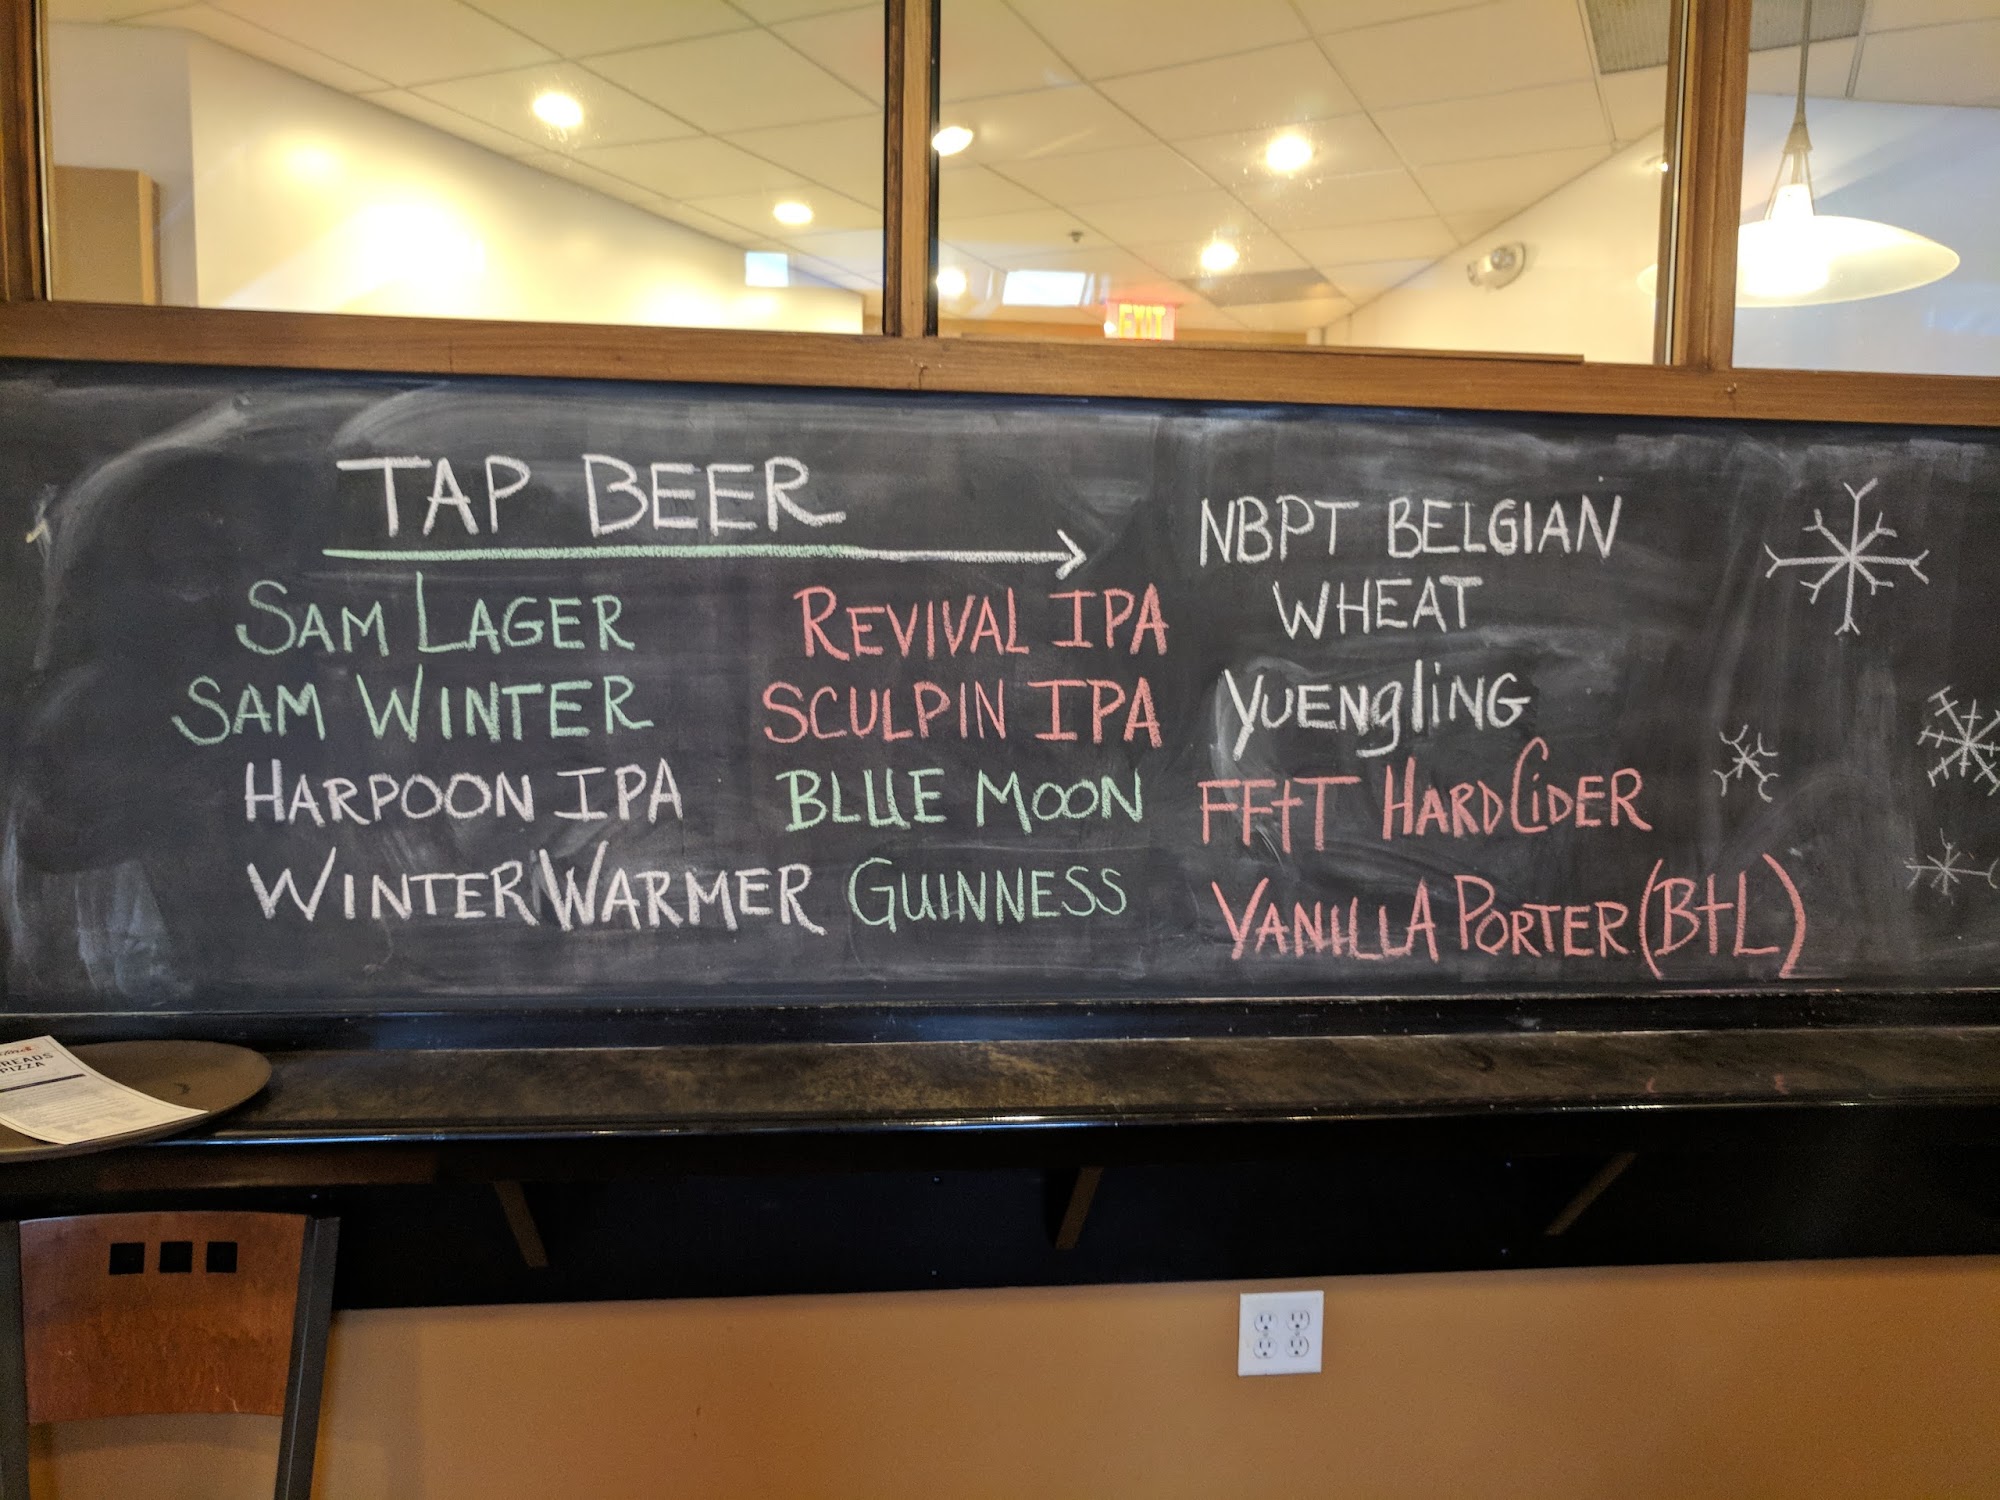 EXIT
TAP BEER
SAM LAGER
SAM WINTER
HARPOON IPA
WINTER WARMER
REVIVAL IPA
SCULPIN IPA
BLUE MOON
GUINNESS
NBPT BELGIAN
WHEAT
YUENglING
FF+T HARD CIDER
VANILLA PORTER (BtL)
PIZZA